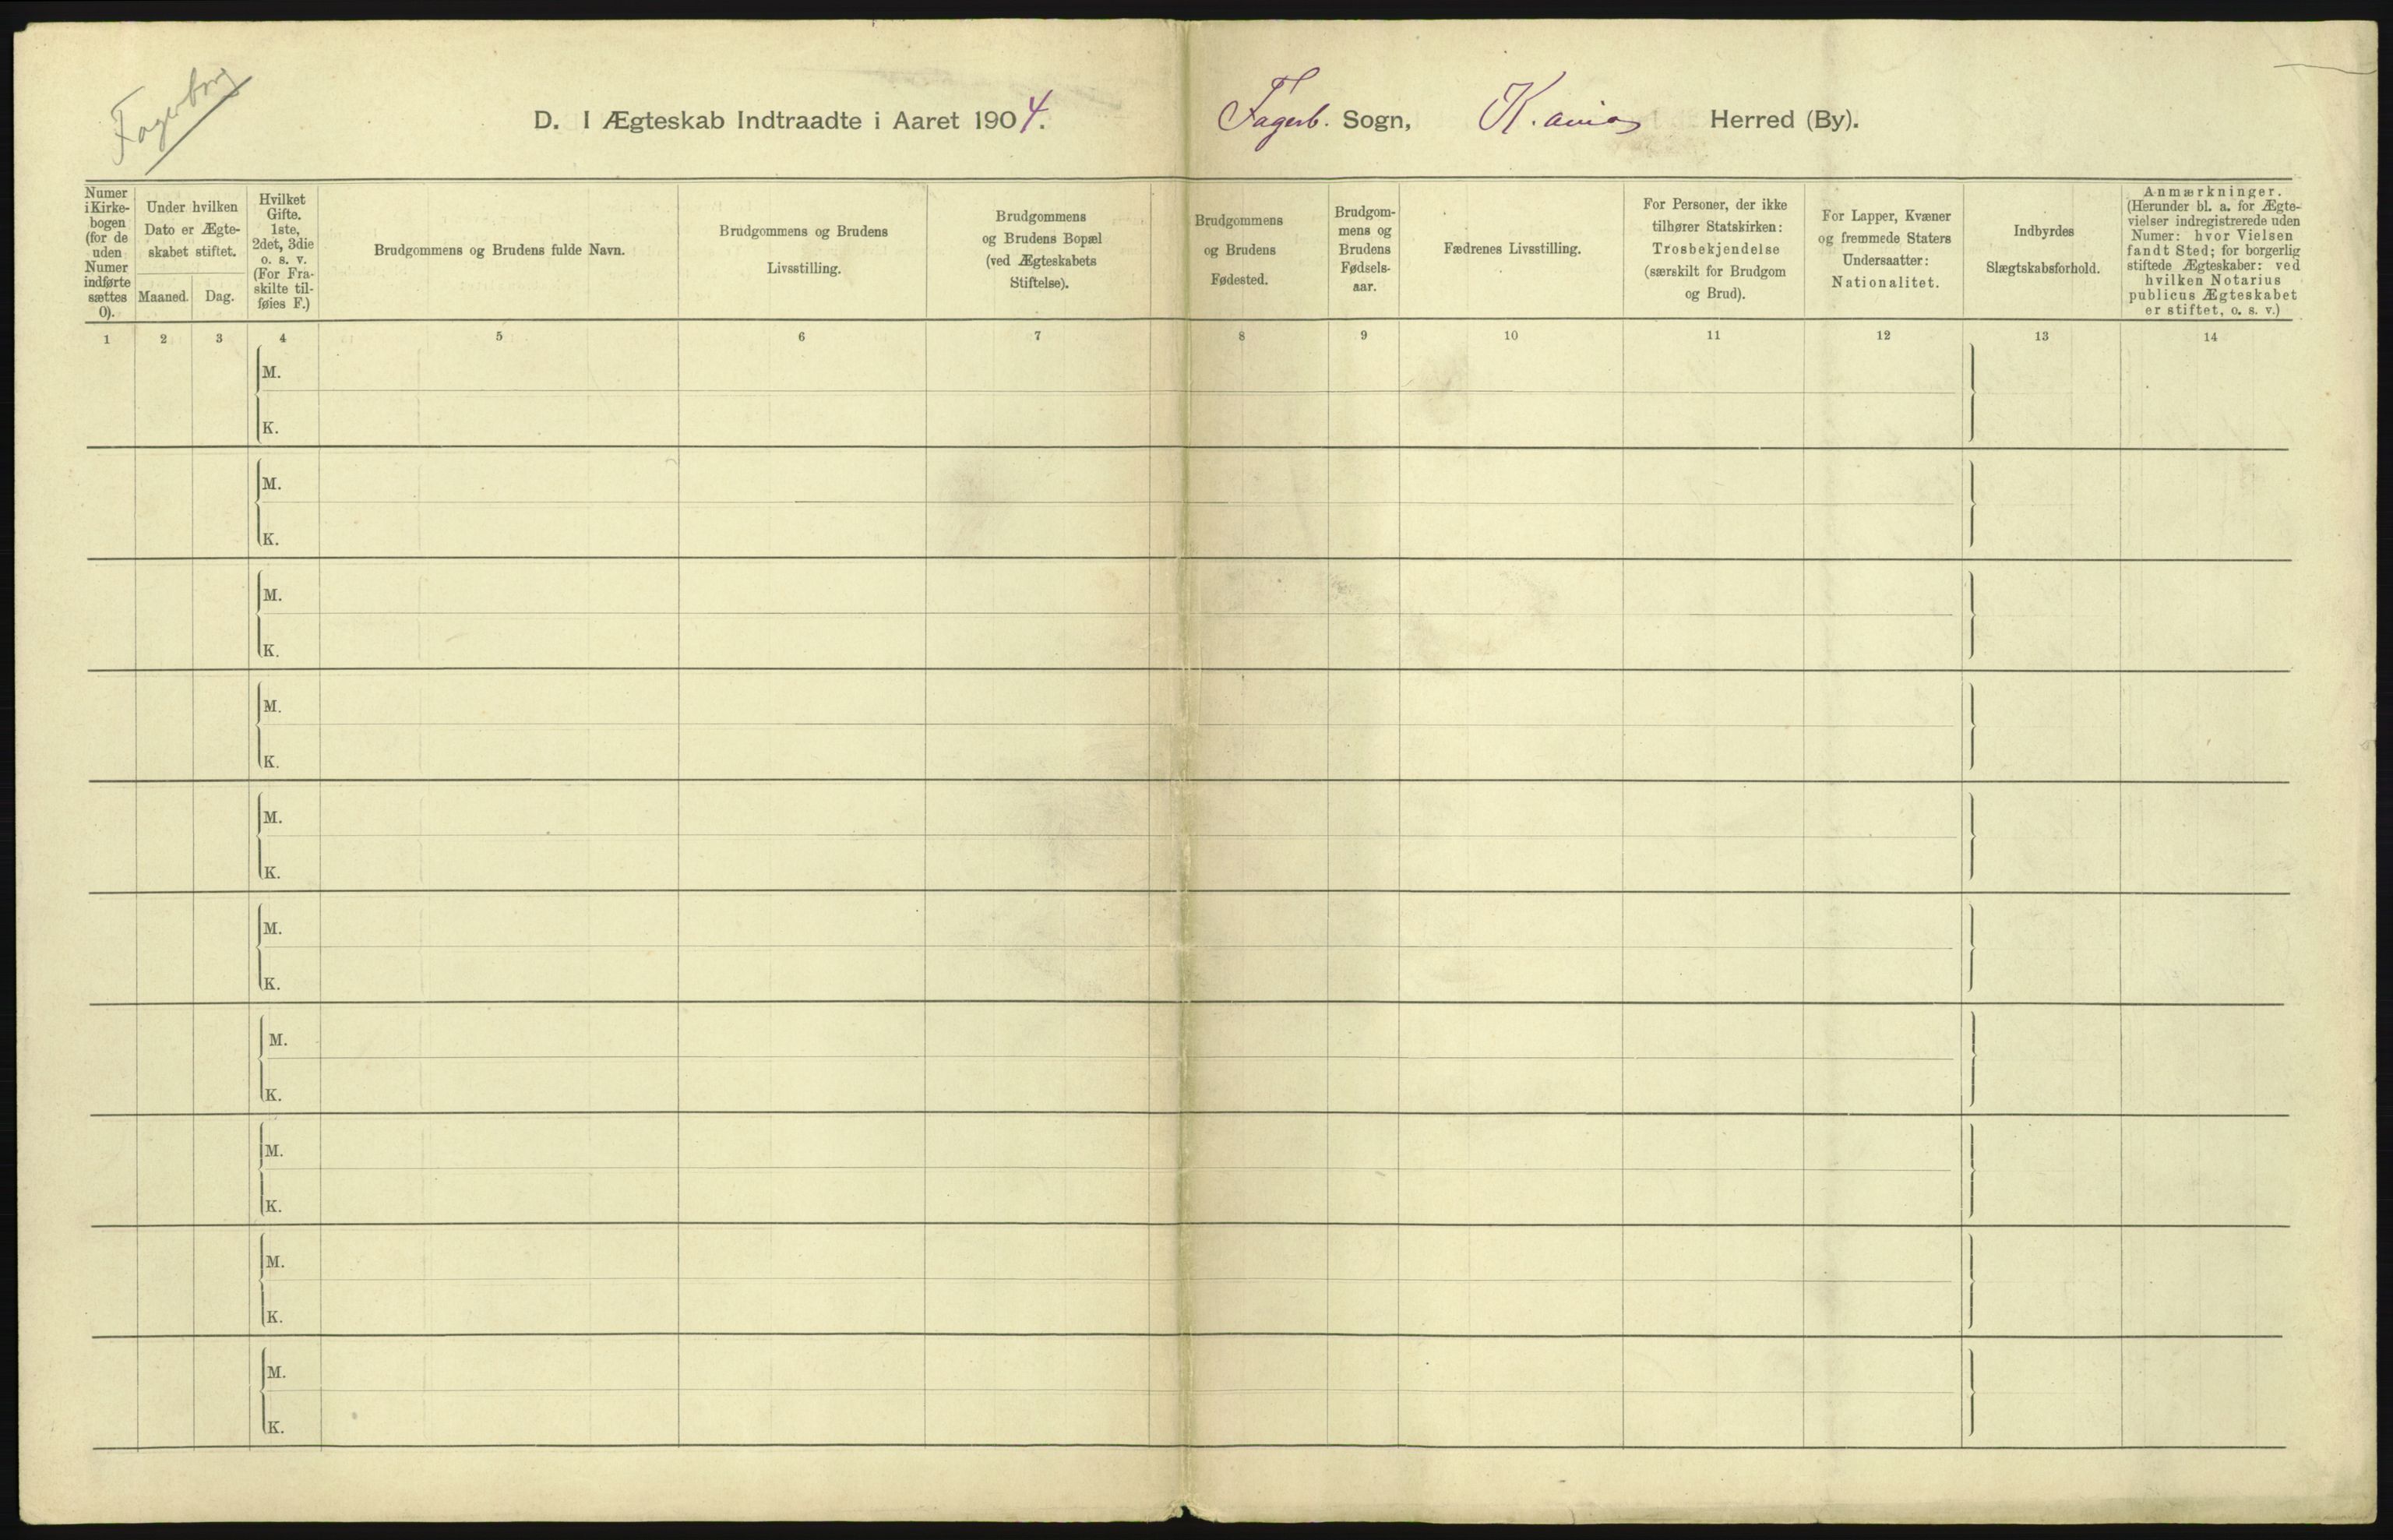 Fagerborg
D. I Ægteskab Indtraadte i Aaret 1904. Fagerb. Sogn, K.ania Herred (By).
Numer
i Kirke-
bogen
(for de
uden
Numer
indførte
sættes
0).
Under hvilken
Dato er Ægte-
skabet stiftet.
Maaned. Dag.
Hvilket
Gifte.
1ste,
2det, 3die
o. s. v.
(For Fra-
skilte til-
føies F.)
Brudgommens og Brudens fulde Navn.
Brudgommens og Brudens
Livsstilling.
Brudgommens
og Brudens Bopæl
(ved Ægteskabets
Stiftelse).
Brudgommens
og Brudens
Fødested.
Brudgom-
mens og
Brudens
Fødsels-
aar.
Fædrenes Livsstilling.
For Personer, der ikke
tilhører Statskirken:
Trosbekjendelse
(særskilt for Brudgom
og Brud).
For Lapper, Kvæner
og fremmede Staters
Undersaatter:
Nationalitet.
Indbyrdes
Slægtskabsforhold.
Anmærkninger.
(Herunder bl. a. for Ægte-
vielser indregistrerede uden
Numer: hvor Vielsen
fandt Sted; for borgerlig
stiftede Ægteskaber: ved
hvilken Notarius
publicus Ægteskabet
er stiftet, o. s. v.)
1 2 3 4 5 6 7 8 9 10 11 12 13 14
M.
K.
M.
K.
M.
K.
M.
K.
M.
K.
M.
K.
M.
K.
M.
K.
M.
K.
M.
K.